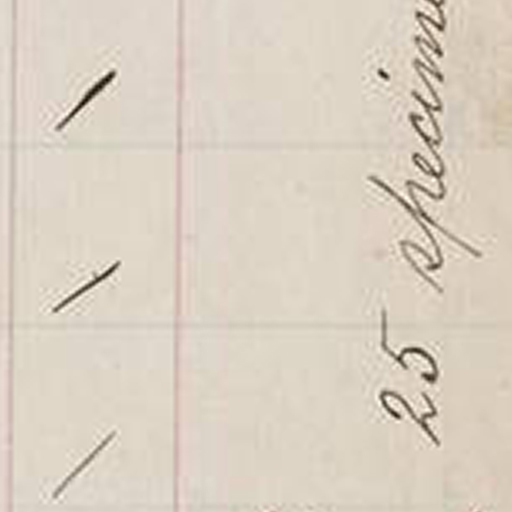 25 specim